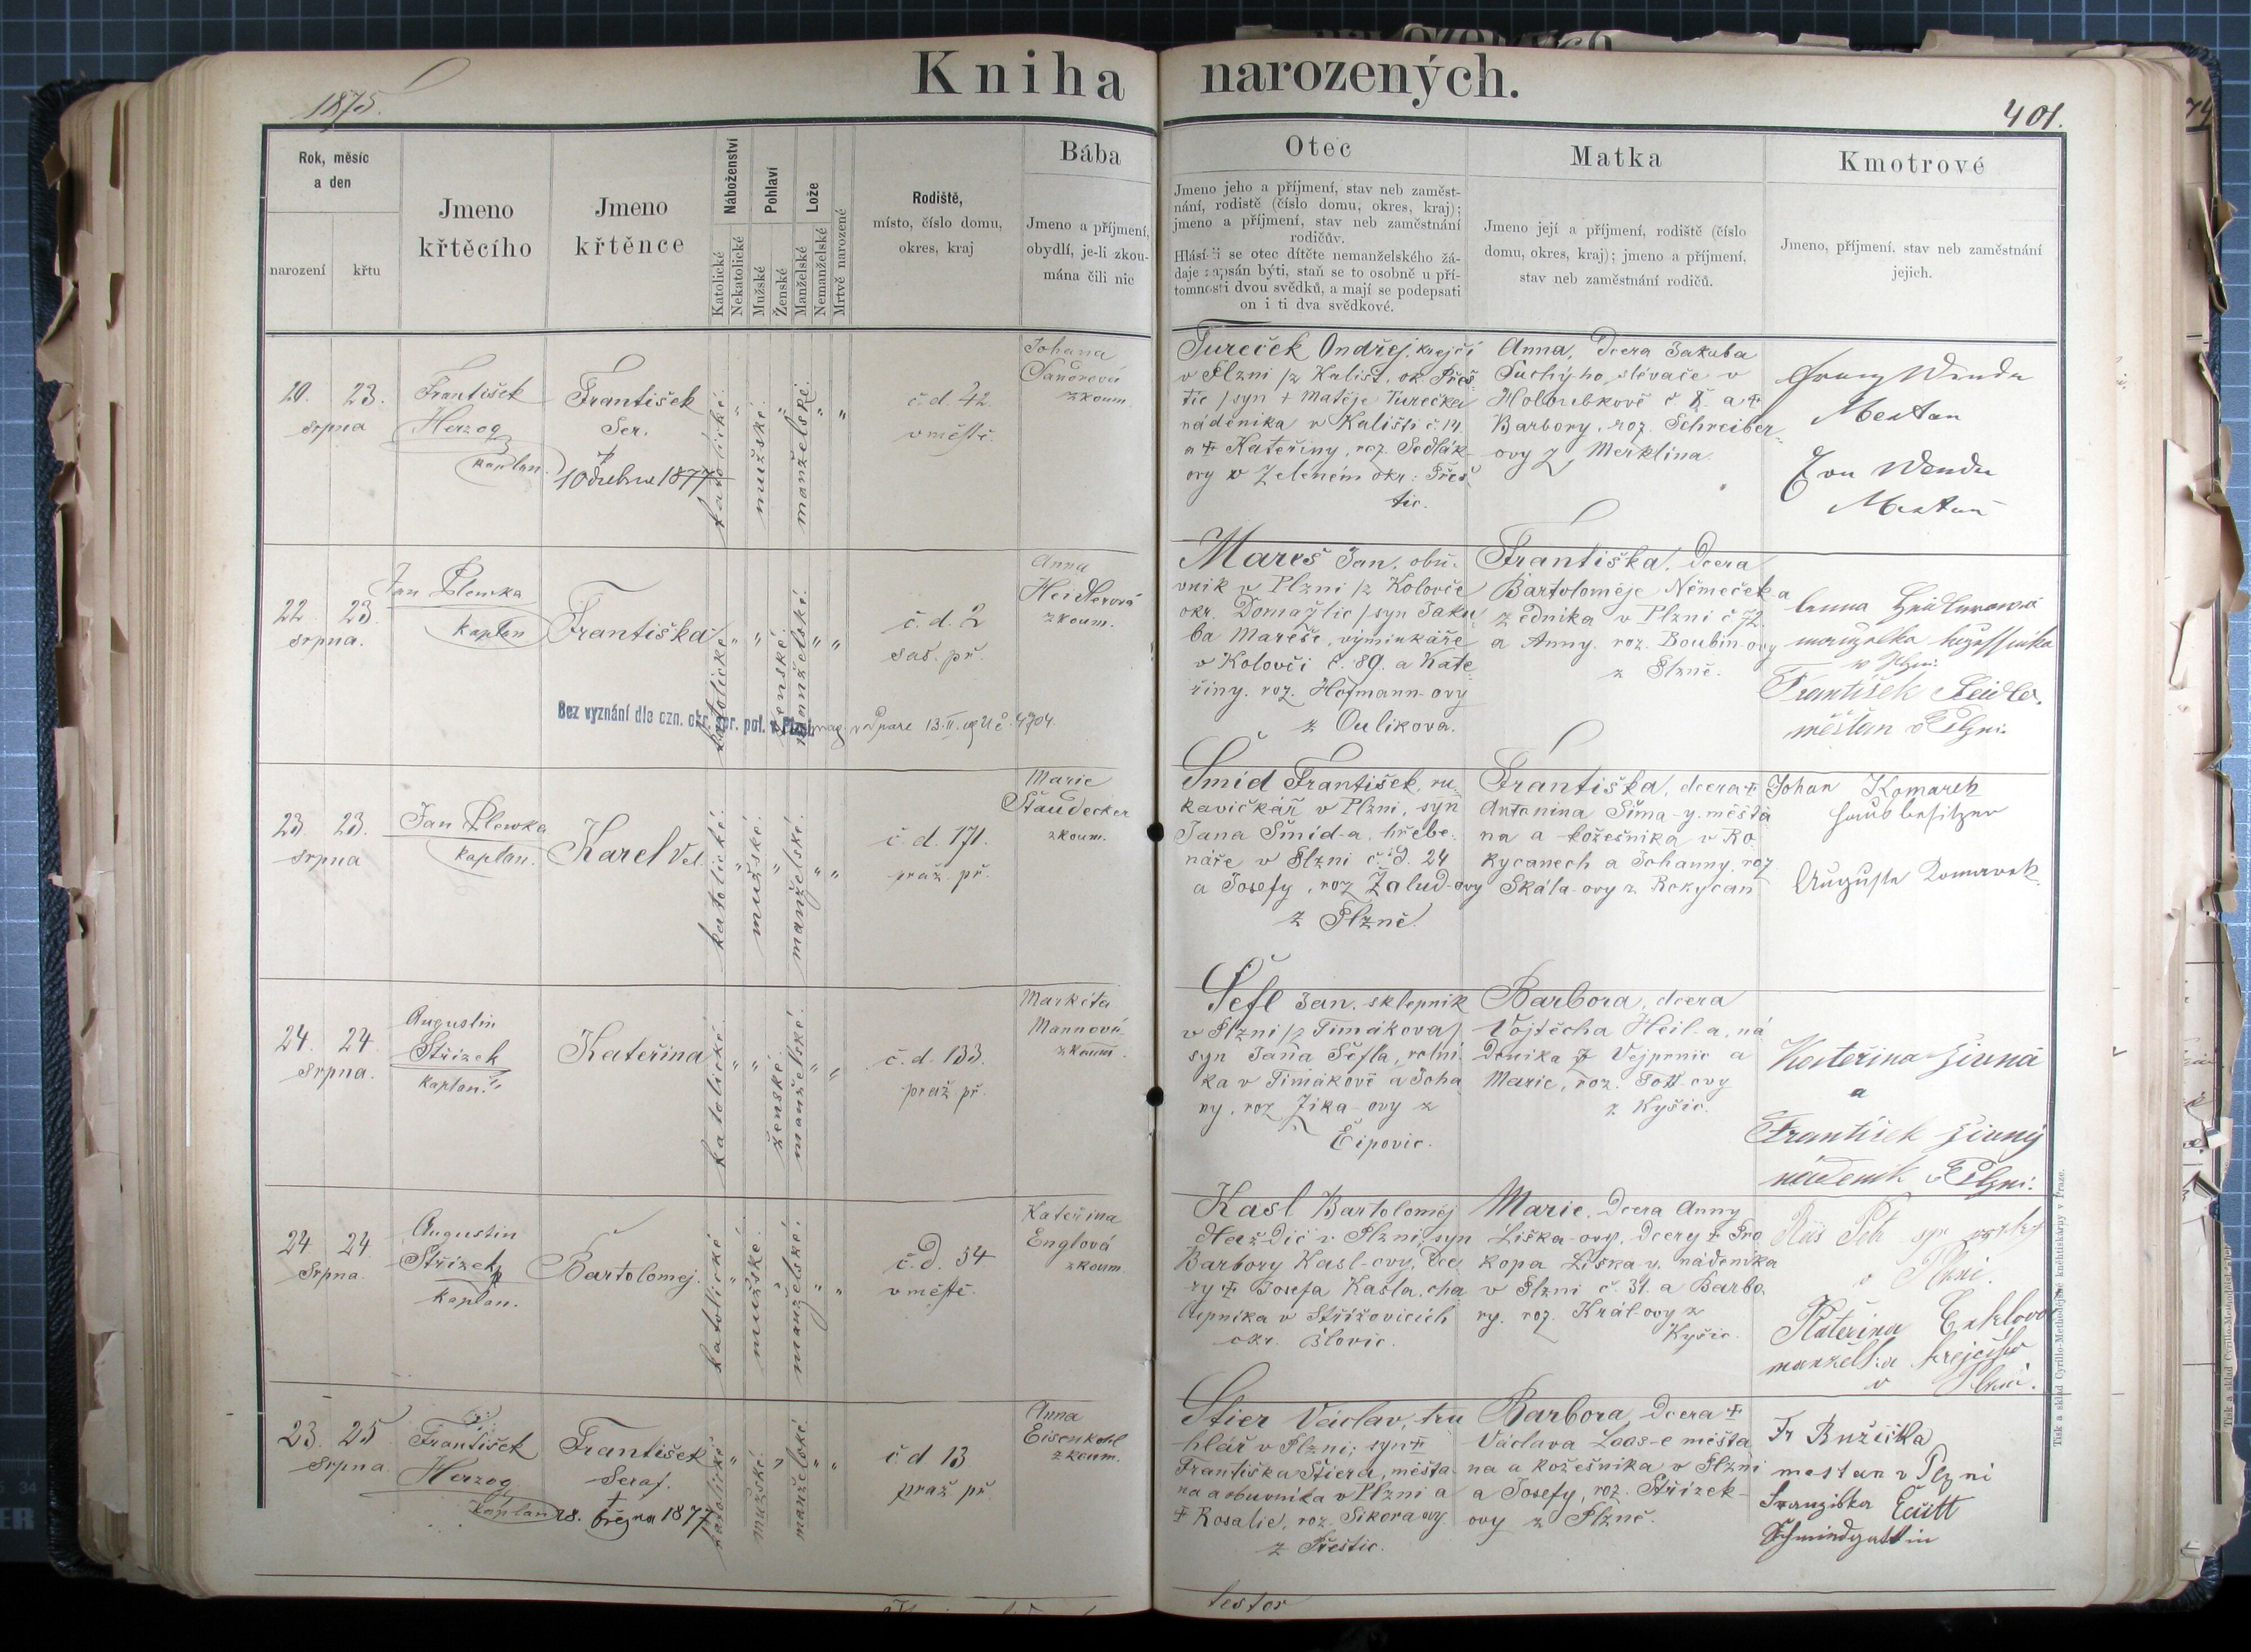 Kniha narozených.
1875.
401.
Rok, měsíc
a den
narození
křtu
Jmeno
křtěcího
Jmeno
křtěnce
Náboženství
Katolické
Nekatolické
Pohlaví
Mužské
Ženské
Lože
Manželské
Nemanželské
Mrtvě narozené
Rodiště,
místo, číslo domu,
okres, kraj
Bába
Jmeno a příjmení,
obydlí, je-li zkou-
mána čili nic
Otec
Jmeno jeho a příjmení, stav neb zaměst-
nání, rodiště (číslo domu, okres, kraj);
jmeno a příjmení, stav neb zaměstnání
rodičův.
Hlásí-li se otec dítěte nemanželského žá-
daje zapsán býti, staň se to osobně u pří-
tomnosti dvou svědků, a mají se podepsati
on i ti dva svědkové.
Matka
Jmeno její a příjmení, rodiště (číslo
domu, okres, kraj); jmeno a příjmení,
stav neb zaměstnání rodičů.
Kmotrové
Jmeno, příjmení, stav neb zaměstnání
jejich.
23.
srpna
František
Herzog
kaplan.
František
Ser.
1877
katolické
mužské
manželské
č. d. 42.
v městě
Johana
zkoum.
Tureček Ondřej, krejčí
v Plzni /z Kališť, ok. Přeš-
tic / syn + Matěje Turečka
nádeníka v Kališti č. 14
a + Kateřiny, roz. Sedlák-
ovy v Zeleném okr: Přeš
tic.
Anna, dcera Jakuba
Suchýho, slévače v
Holoubkově č a +
Barbory, roz. Schreiber-
ovy z Merklína.
22. 23.
srpna.
Jan Plewka
kaplan
Františka
katolické
ženské
manželské
č. d. 2
sas. př.
Anna
Heidlerová
zkoum.
Bez vyznání dle ozn. okr. spr. pol. v Plzni
Mareš Jan, obu-
vník v Plzni /z Kolovče
okr. Domažlic / syn Jaku
ba Mareše, výminkáře
v Kolovči č. 89. a Kate
řiny, roz. Hofmann-ovy
z Oulikova.
Františka, dcera
Bartoloměje Němečka
zedníka v Plzni č 72.
a Anny. roz. Boubín-ovy
z Plzně.
František Heidler,
měšťan v Plzni.
23. 23.
srpna
Jan Plewka
kaplan.
Karel Vel.
katolické
mužské
manželské
č. d. 171.
praž. př.
Marie
Štaudecker
zkoum.
Šmid František, ru-
kavičkář v Plzni, syn
Jana Šmid-a, hřebe-
náře v Plzni č. d. 24
a Josefy, roz Žalud-ovy
z Plzně.
Františka, dcera +
Antonína Šíma-y, měšťa
na a kožešníka v Ro-
kycanech a Johanny, roz
Skála-ovy z Rokycan
Johan Komarek
Hausbesitzer
Augusta Komarek
24. 24.
srpna.
Augustin
Střízek
kaplan.
Kateřina
katolické
ženské
manželské
č. d. 133.
praž př.
Markéta
Mannová
zkoum.
Šefl Jan, sklepník
v Plzni /z Timákova/
syn Jana Šefla, rolní-
ka v Timákově a Joha
ny, roz Zika-ovy z
Čipovic.
Barbora, dcera
Vojtěcha Heil-a, ná
deníka z Vejprnic a
Marie, roz.
z Kyšic.
Kateřina
a
František
nádeník v Plzni.
24 24
Srpna.
Augustin
Střízek
kaplan.
Bartolomej.
katolické
mužské
manželské
č. d. 54
v městě.
Kateřina
Englová
zkoum
Kasl Bartoloměj
v Plzni, syn
Barbory Kasl-ovy, dce
ry + Josefa Kasla, cha
lupníka v Střížovicích
okr. Blovic.
Marie, dcera Anny
Liška-ovy, dcery + Pro
kopa Liška-y, nádeníka
v Plzni č. 31. a Barbo
ry, roz. Král-ovy z
Kyšic.
Petr
v Plzni.
Kateřina
manželka krejčího
v Plzni.
23. 25
srpna
František
Herzog
kaplan
František
Seraf.
+
28. března 1877
katolické
mužské
manželské
č d 13
praž př
Anna
Eisenkohl
zkoum.
Stier Václav, tru
hlář v Plzni; syn +
Františka Stiera, měšťa-
na a obuvníka v Plzni a
+ Rosalie, roz. Sikora-ovy
z Přeštic.
Barbora, dcera +
Václava Laas-e měšťa
na a kožešníka v Plzni
a Josefy, roz. Střízek-
ovy z Plzně.
FrRužička
mestan v Plzni
Tisk a sklad Cyrillo-Methodějské knihtiskárny v Praze.